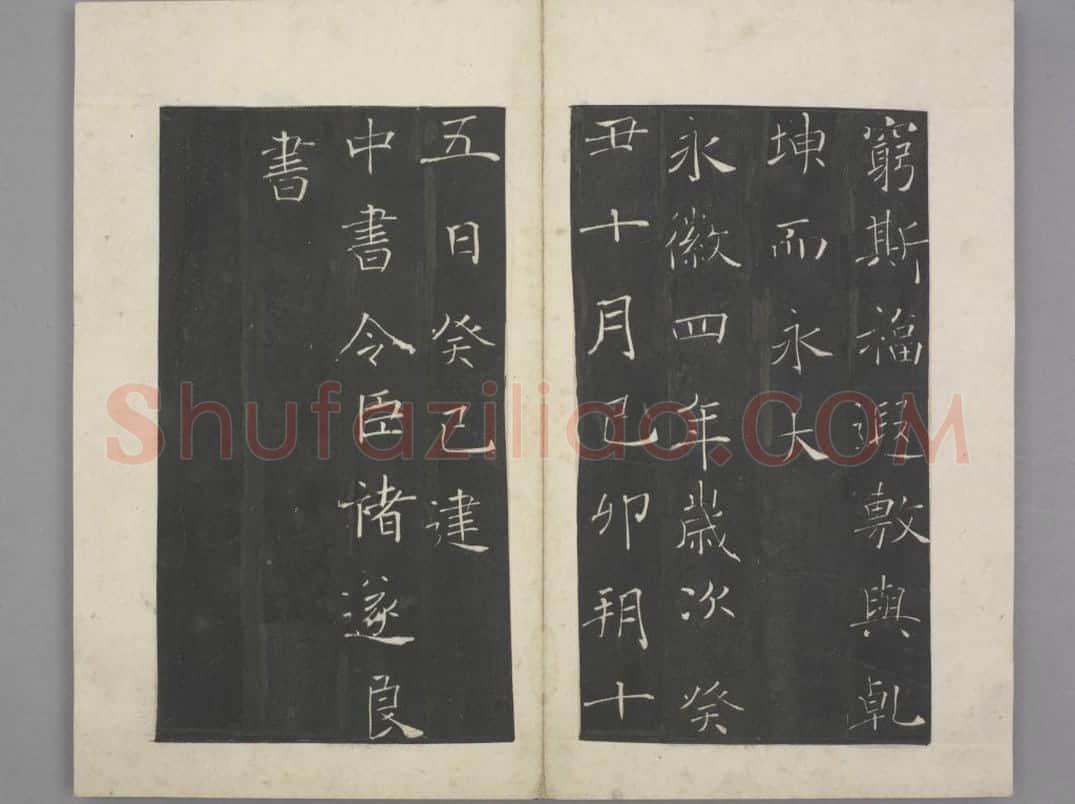 窮斯福遐敷與乹
坤而永大
永徽四年歳次癸
丑十月己卯朔十
五日癸巳建
中書令臣褚遂良
書
Shufaziliao.COM